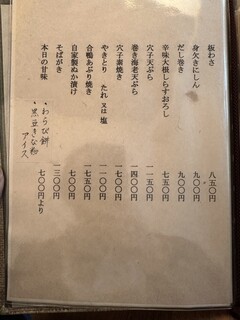 板わさ 八五〇円
身欠きにしん 九〇〇円
だし巻き 九〇〇円
辛味大根しらすおろし 七五〇円
穴子天ぷら 一一五〇円
巻き海老天ぷら 一四〇〇円
穴子素焼き 一七〇〇円
やきとり たれ又は塩 一一〇〇円
合鴨あぶり焼き 一七五〇円
自家製ぬか漬け 七〇〇円
そばがき 一三〇〇円
本日の甘味 七〇〇円より
・わらび餅
・黒豆きな粉アイス